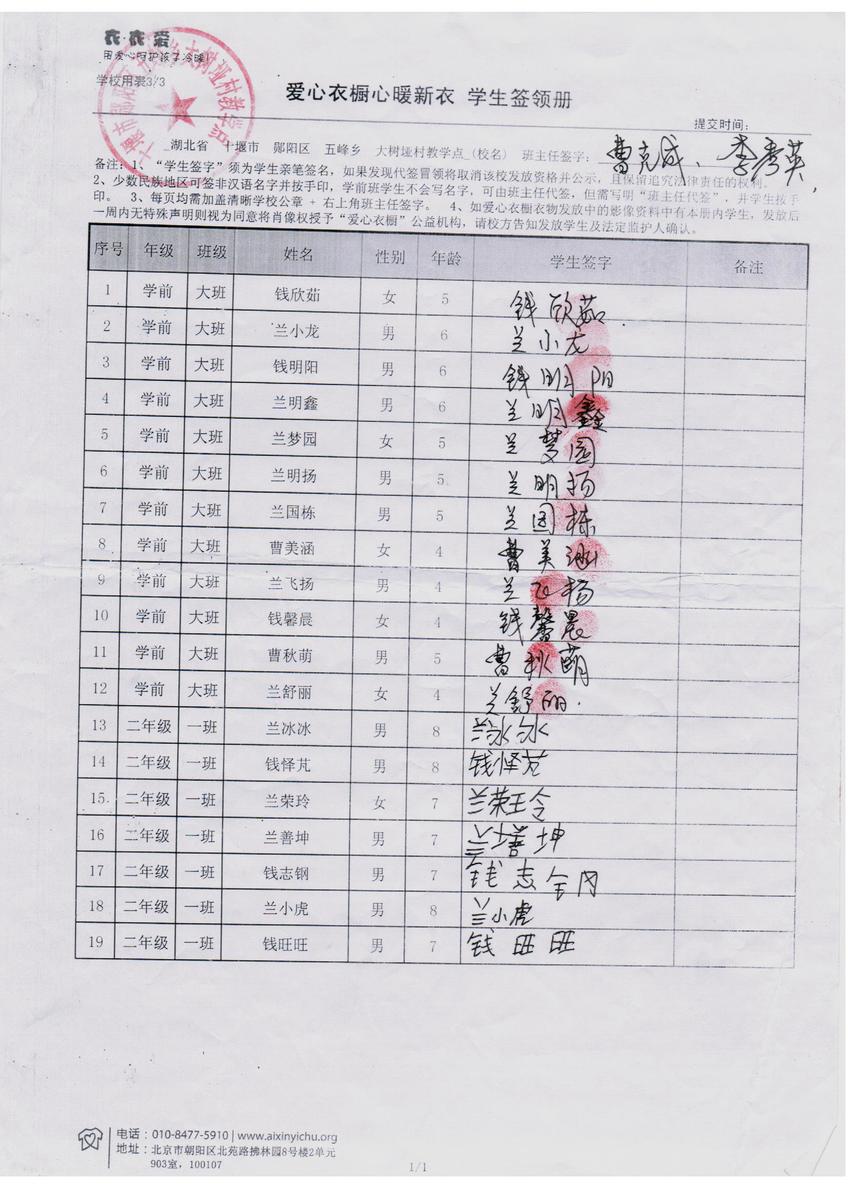 衣·衣爱
用爱心呵护孩子冷暖!
学校用表3/3
爱心衣橱心暖新衣 学生签领册
提交时间:
湖北省 十堰市 郧阳区 五峰乡 大树垭村教学点 (校名) 班主任签字: 曹克成、李秀英
备注:1、“学生签字”须为学生亲笔签名,如果发现代签冒领将取消该校发放资格并公示,且保留追究法律责任的权利。
2、少数民族地区可签非汉语名字并按手印,学前班学生不会写名字,可由班主任代签,但需写明“班主任代签”,并学生按手
印。 3、每页均需加盖清晰学校公章 + 右上角班主任签字。 4、如爱心衣橱衣物发放中的影像资料中有本册内学生,发放后
一周内无特殊声明则视为同意将肖像权授予“爱心衣橱”公益机构,请校方告知发放学生及法定监护人确认。
序号 年级 班级 姓名 性别 年龄 学生签字 备注
1 学前 大班 钱欣茹 女 5 钱欣茹
2 学前 大班 兰小龙 男 6 兰小龙
3 学前 大班 钱明阳 男 6 钱明阳
4 学前 大班 兰明鑫 男 6 兰明鑫
5 学前 大班 兰梦园 女 5 兰梦园
6 学前 大班 兰明扬 男 5 兰明扬
7 学前 大班 兰国栋 男 5 兰国栋
8 学前 大班 曹美涵 女 4 曹美涵
9 学前 大班 兰飞扬 男 4 兰飞杨
10 学前 大班 钱馨晨 女 4 钱馨晨
11 学前 大班 曹秋萌 男 5 曹秋萌
12 学前 大班 兰舒丽 女 4 兰舒丽
13 二年级 一班 兰冰冰 男 8 兰冰冰
14 二年级 一班 钱怿芃 男 8 钱怿芃
15 二年级 一班 兰荣玲 女 7 兰荣玲
16 二年级 一班 兰善坤 男 7 兰善坤
17 二年级 一班 钱志钢 男 7 钱志钢
18 二年级 一班 兰小虎 男 8 兰小虎
19 二年级 一班 钱旺旺 男 7 钱旺旺
电话:010-8477-5910 | www.aixinyichu.org
地址:北京市朝阳区北苑路拂林园8号楼2单元
903室,100107
1/1